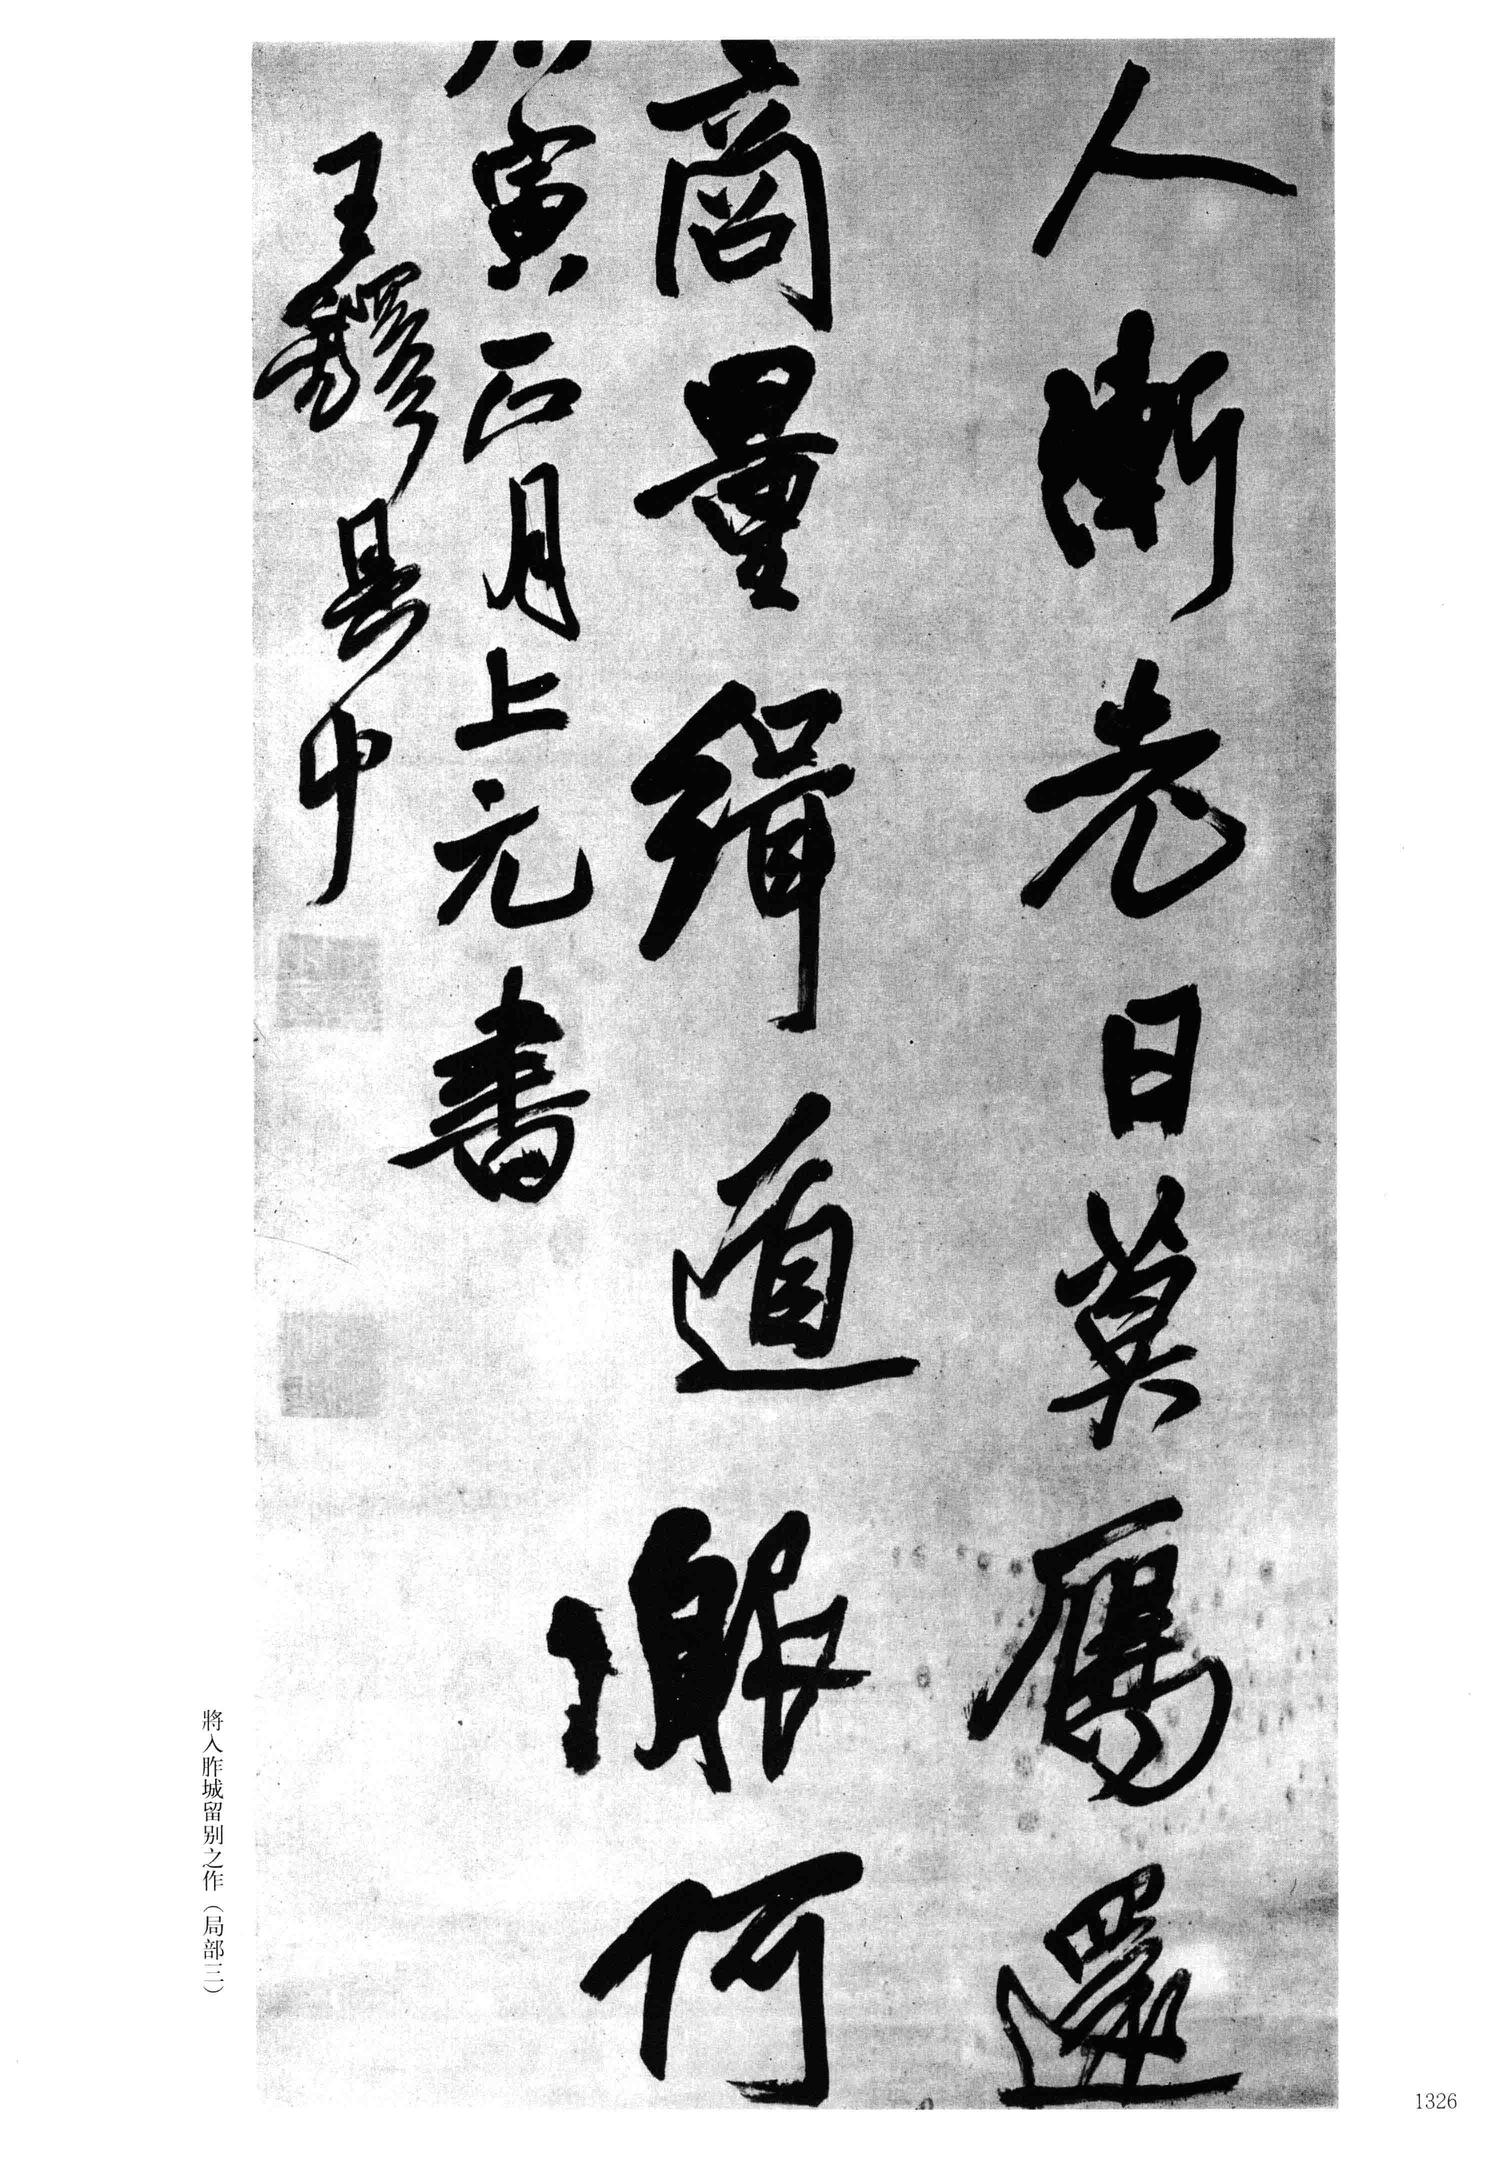 人漸老日莫鴈還
商量緝道何
寅正月上元書
王鐸中
將入胙城留别之作（局部三）
1326